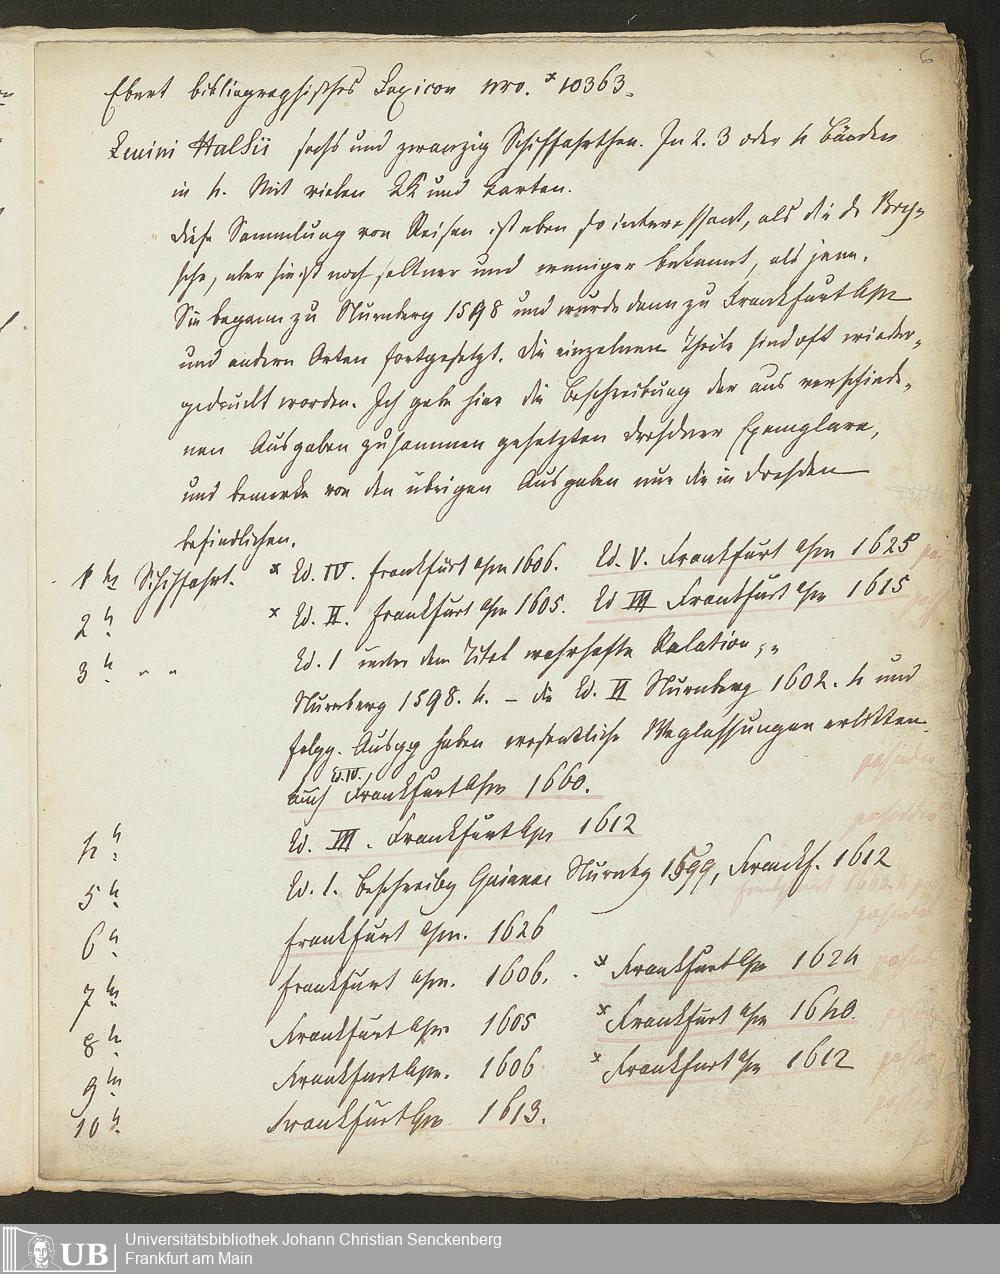 6
Ebert bibliographisches Lexicon nro. × 10363.
Levini Hulsii sechs und zwanzig Schiffahrthen. In 2. 3 oder 4 Bänden
in 4. Mit vielen KK und Karten.
Diese Sammlung von Reisen ist eben so interessant, als die de Bry-
sche, aber sie ist noch seltner und weniger bekannt, als jene.
Sie begann zu Nürnberg 1598 und wurde dann zu Frankfurt a/m
und andern Orten fortgesetzt. Die einzelnen Theile sind oft wieder-
gedruckt worden. Ich gebe hier die Beschreibung der aus verschiede-
nen Ausgaben zusammen gesetzten Dresdner Exemplare,
und bemerke von den übrigen Ausgaben nur die in Dresden
befindlichen.
1 te Schiffahrt. × Ed. IV. Frankfurt a/m 1606. Ed. V. Frankfurt a/m 1625
2 t. × Ed. II. Frankfurt a/m 1605. Ed III Frankfurt a/m 1615
3 t. " " Ed. 1 unter dem Titel wahrhafte Relation
Nürnberg 1598. 4. – die Ed. II Nürnberg 1602. 4 und
folgg. Ausgg haben wesentliche Weglassungen erlitten.
auch Ed. IV. Frankfurt a/m 1660.
4 t. Ed. III. Frankfurt a/m 1612
5 t. Ed. 1. Beschreibg Guianae Nürnbg 1599, Frankf. 1612
6 t. Frankfurt a/m. 1626
7 te Frankfurt a/m. 1606. × Frankfurt a/m 1624
8 t. Frankfurt a/m 1605 × Frankfurt a/m 1640.
9 te Frankfurt a/m. 1606 × Frankfurt a/m 1612
10 t. Frankfurt a/m 1613.
UB Universitätsbibliothek Johann Christian Senckenberg
Frankfurt am Main